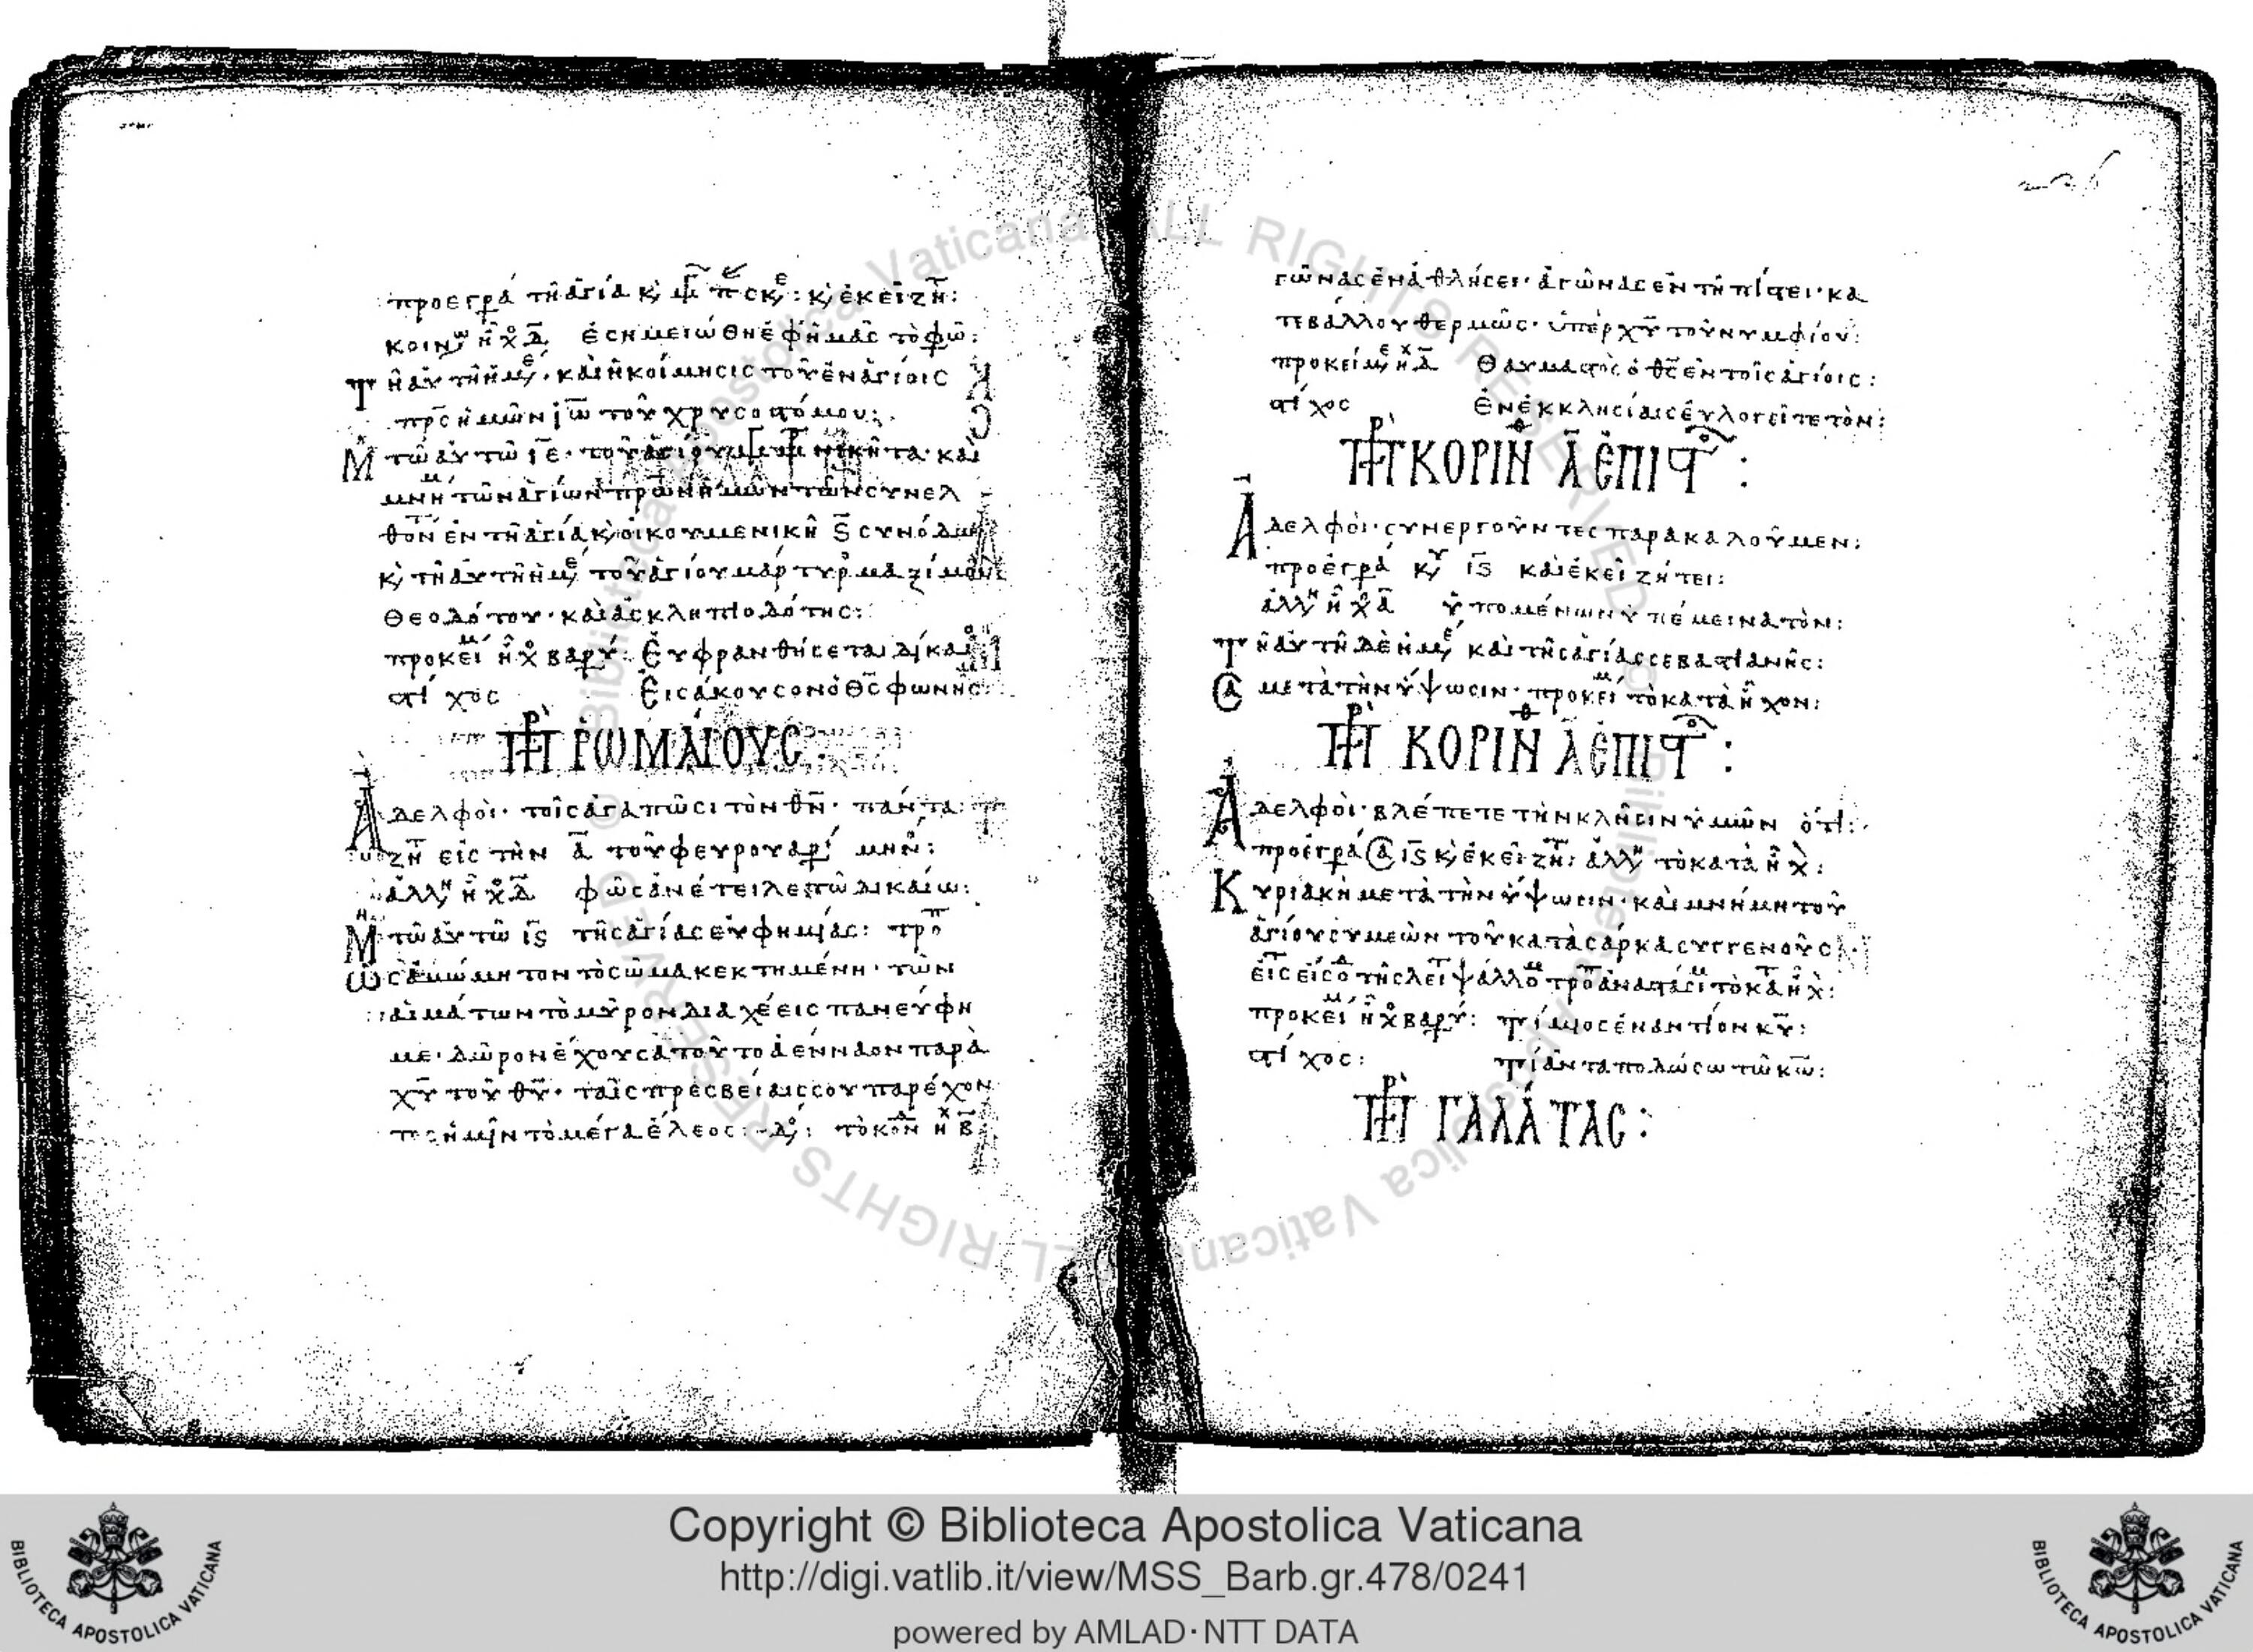 προεγρά τῆ ἁγία κ̀ ἐκεῖ ζη:
κοιν ἦχ δ̄ ἐσημειώθη ἐφ ἡμᾶς τὸ φῶ:
Τῆ αὐτῆ ἡμε, καὶ ἡ κοίμησις τοῦ ἐν ἁγίοις
πρς ἡμῶν ἰω τοῦ χρυσοστόμου:
Μ τῶ αὐτῶ ιε· τοῦ ἁγίου νικήτα· καὶ
μνη τῶν ἁγίων πρων ἡμῶν τῶν συνελ
θον ἐν τῆ ἁγία κ̀ οἰκουμενικῆ ς συνόδω
κ̀ τῆ αὐτῆ ἡμε τοῦ ἁγίου μάρτυρ μαξίμου
θεοδότου· καὶ ἀσκληπιοδότης:
προκεί ἦχ βαρύ: Εὐφρανθήσεται δίκαι
στίχος Εἰσάκουσον ὁ θς φωνης:
πρ ῬΩΜΑΙΟΥΣ:
Ἀδελφοὶ· τοῖς ἀγαπῶσι τὸν θν· πάντα
ζη εἰς τὴν ᾱ τοῦ φευρουαρί μην:
ἀλλ ἦχ δ̄ φῶς ἀνέτειλε τῶ δικαίω:
Μ τῶ αὐτῶ ις τῆς ἁγίας εὐφημίας: τρο
Ὡς ἀμώμητον τὸ σῶμα κεκτημένη· τῶν
αἱμάτων τὸ μύρον διαχέεις πανεύφη
με· δῶρον ἔχουσα τοῦτο ἀένναον παρὰ
χυ τοῦ θυ· ταῖς πρεσβείαις σου παρέχον
τος ἡμῖν τὸ μέγα ἔλεος: τὸ κον ἦχ β̄
γῶνας ἐναθλήσει· ἀγῶνας ἐν τῆ πίστει· κα
τεβάλλου θερμῶς· ὑπὲρ χυ τοῦ νυμφίου:
προκείμε ἦχ δ̄ Θαυμαστὸς ὁ θς ἐν τοῖς ἁγίοις:
στίχος Ἐν ἐκκλησίαις εὐλογεῖτε τὸν:
πρ ΚΟΡΙΝθ Ᾱ ἘΠΙΣτο:
Ἀδελφοὶ· συνεργοῦντες παρακαλοῦμεν:
προεγρά κυ ις καὶ ἐκεῖ ζήτει:
ἀλλη ἦχ ᾱ ὑπομένων ὑπέμεινα τὸν:
Τῆ αὐτῆ δὲ ἡμε καὶ τῆς ἁγίας σεβαστιανῆς:
Σα μετὰ τὴν ὕψωσιν· προκεί τὸ κατὰ ἦχον:
πρ ΚΟΡΙΝθ Ᾱ ἘΠΙΣτο:
Ἀδελφοὶ· βλέπετε τὴν κλῆσιν ὑμῶν ὅτι:
προεγρά Σα ις κ̀ ἐκεῖ ζη: ἀλλη τὸ κατὰ ἦχ:
Κυριακὴ μετὰ τὴν ὕψωσιν· καὶ μνήμη τοῦ
ἁγίου συμεὼν τοῦ κατὰ σάρκα συγγενοῦς
εἰς εἰσο τῆς λει ψάλλο τρο ἀναστάσι τὸ κα ἦχ:
προκεί ἦχ βαρύ: τίμιος ἐναντίον κυ:
στίχος: τί ἀνταποδώσω τῶ κω:
πρ ΓΑΛΑΤΑΣ:
Copyright © Biblioteca Apostolica Vaticana
http://digi.vatlib.it/view/MSS_Barb.gr.478/0241
powered by AMLAD·NTT DATA
BIBLIOTECA APOSTOLICA VATICANA
BIBLIOTECA APOSTOLICA VATICANA